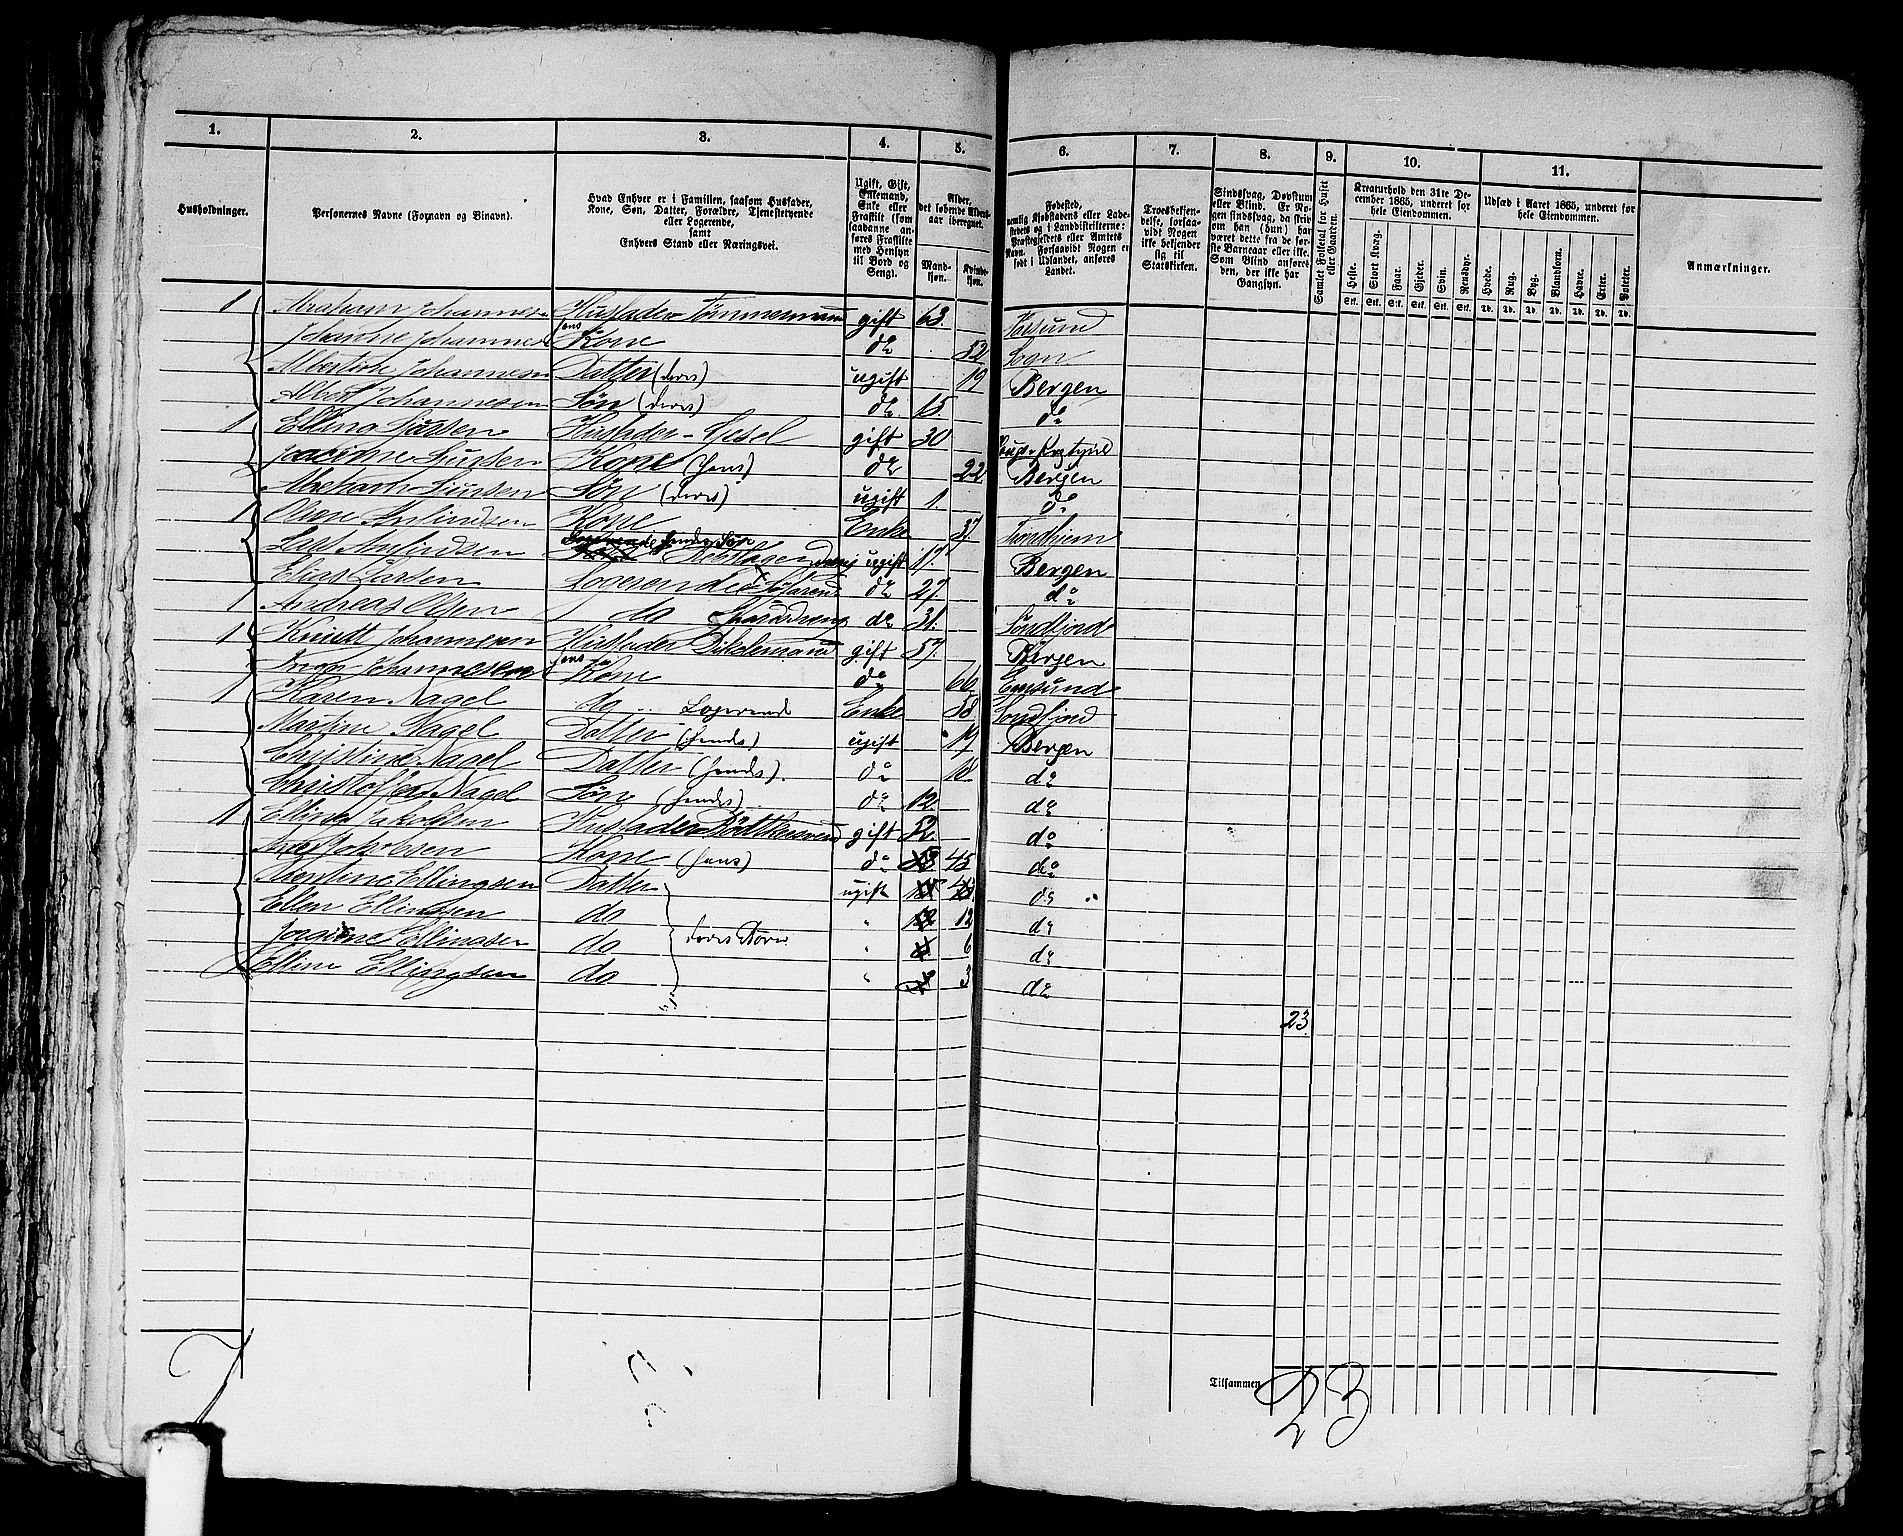 1. 2. 3. 4. 5. 6. 7. 8. 9. 10. 11.
Husholdninger.
Personernes Navne (Fornavn og Binavn).
Hvad Enhver er i Familien, saasom Husfader,
Kone, Søn, Datter, Forældre, Tjenestetyende
eller Logerende,
samt
Enhvers Stand eller Næringsvei.
Ugift, Gift,
Enkemand,
Enke eller
Fraskilt (som
saadanne an-
føres Fraskilte
med Hensyn
til Bord og
Seng).
Alder,
det løbende Alders-
aar iberegnet.
Mand-
kjøn.
Kvinde-
kjøn.
Fødested,
nemlig Kjøbstadens eller Lade-
stedets og i Landdistrikterne:
Præstegjeldets eller Amtets
Navn. Forsaavidt Nogen er
født i Udlandet, anføres
Landet.
Troesbekjen-
delse, forsaa-
vidt Nogen
ikke bekjender
sig til
Statskirken.
Sindssvag, Døvstum
eller Blind. Er No-
gen sindssvag, da skriv
om han (hun) har
været dette fra de før-
ste Barneaar eller ikke.
Som Blind anføres
den, der ikke har
Gangsyn.
Samlet Folketal for Huset
eller Gaarden.
Kreaturhold den 31te De-
cember 1865, underet for
hele Eiendommen.
Heste. Stort Kvæg. Faar. Gjeder. Svin. Rensdyr.
Stk. Stk. Stk. Stk. Stk. Stk.
Udsæd i Aaret 1865, underet for
hele Eiendommen.
Hvede. Rug. Byg. Blandkorn. Havre. Erter. Poteter.
Td. Td. Td. Td. Td. Td. Td.
Anmærkninger.
1 Abraham Johannesen Husfader Tømmermand gift 63.
Johanne Johannesen hans Kone do 52 Sogn
Albertine Johannesen Datter (deres) ugift 19 Bergen
Albert Johannesen Søn (deres) do 15. do
1 Elling Sjursen Husfader gift 30
Jacobine Sjursen Kone (hans) do 22 Bergen
Sjursen Søn (deres) ugift 1. do
1 Kone Enke 37. Trondhjem
ugift 17. Bergen
1 Elias Larsen Logerende do 27. do
1 Andreas Olsen do do 31. Søndfjord
1 Knudt Johannesen Husfader gift 57. Bergen
Inger Johannesen hans Kone do 66 Egersund
1 Karen Nagel do Logerende Enke 58 Søndfjord
Martine Nagel Datter (hendes) ugift 19 Bergen
Christine Nagel Datter (hendes). do 18 do
Christoffer Nagel Søn (hendes) do 12. do
1 Elling Jakobsen Husfader gift 52. do
Jakobsen Kone (hans) do 45 do
Ellingsen Datter ugift do
Ellen Ellingsen do " 12 do
Ellingsen do deres Børn " 6 do
Elline Ellingsen do " 3 do
23.
7
Tilsammen 23